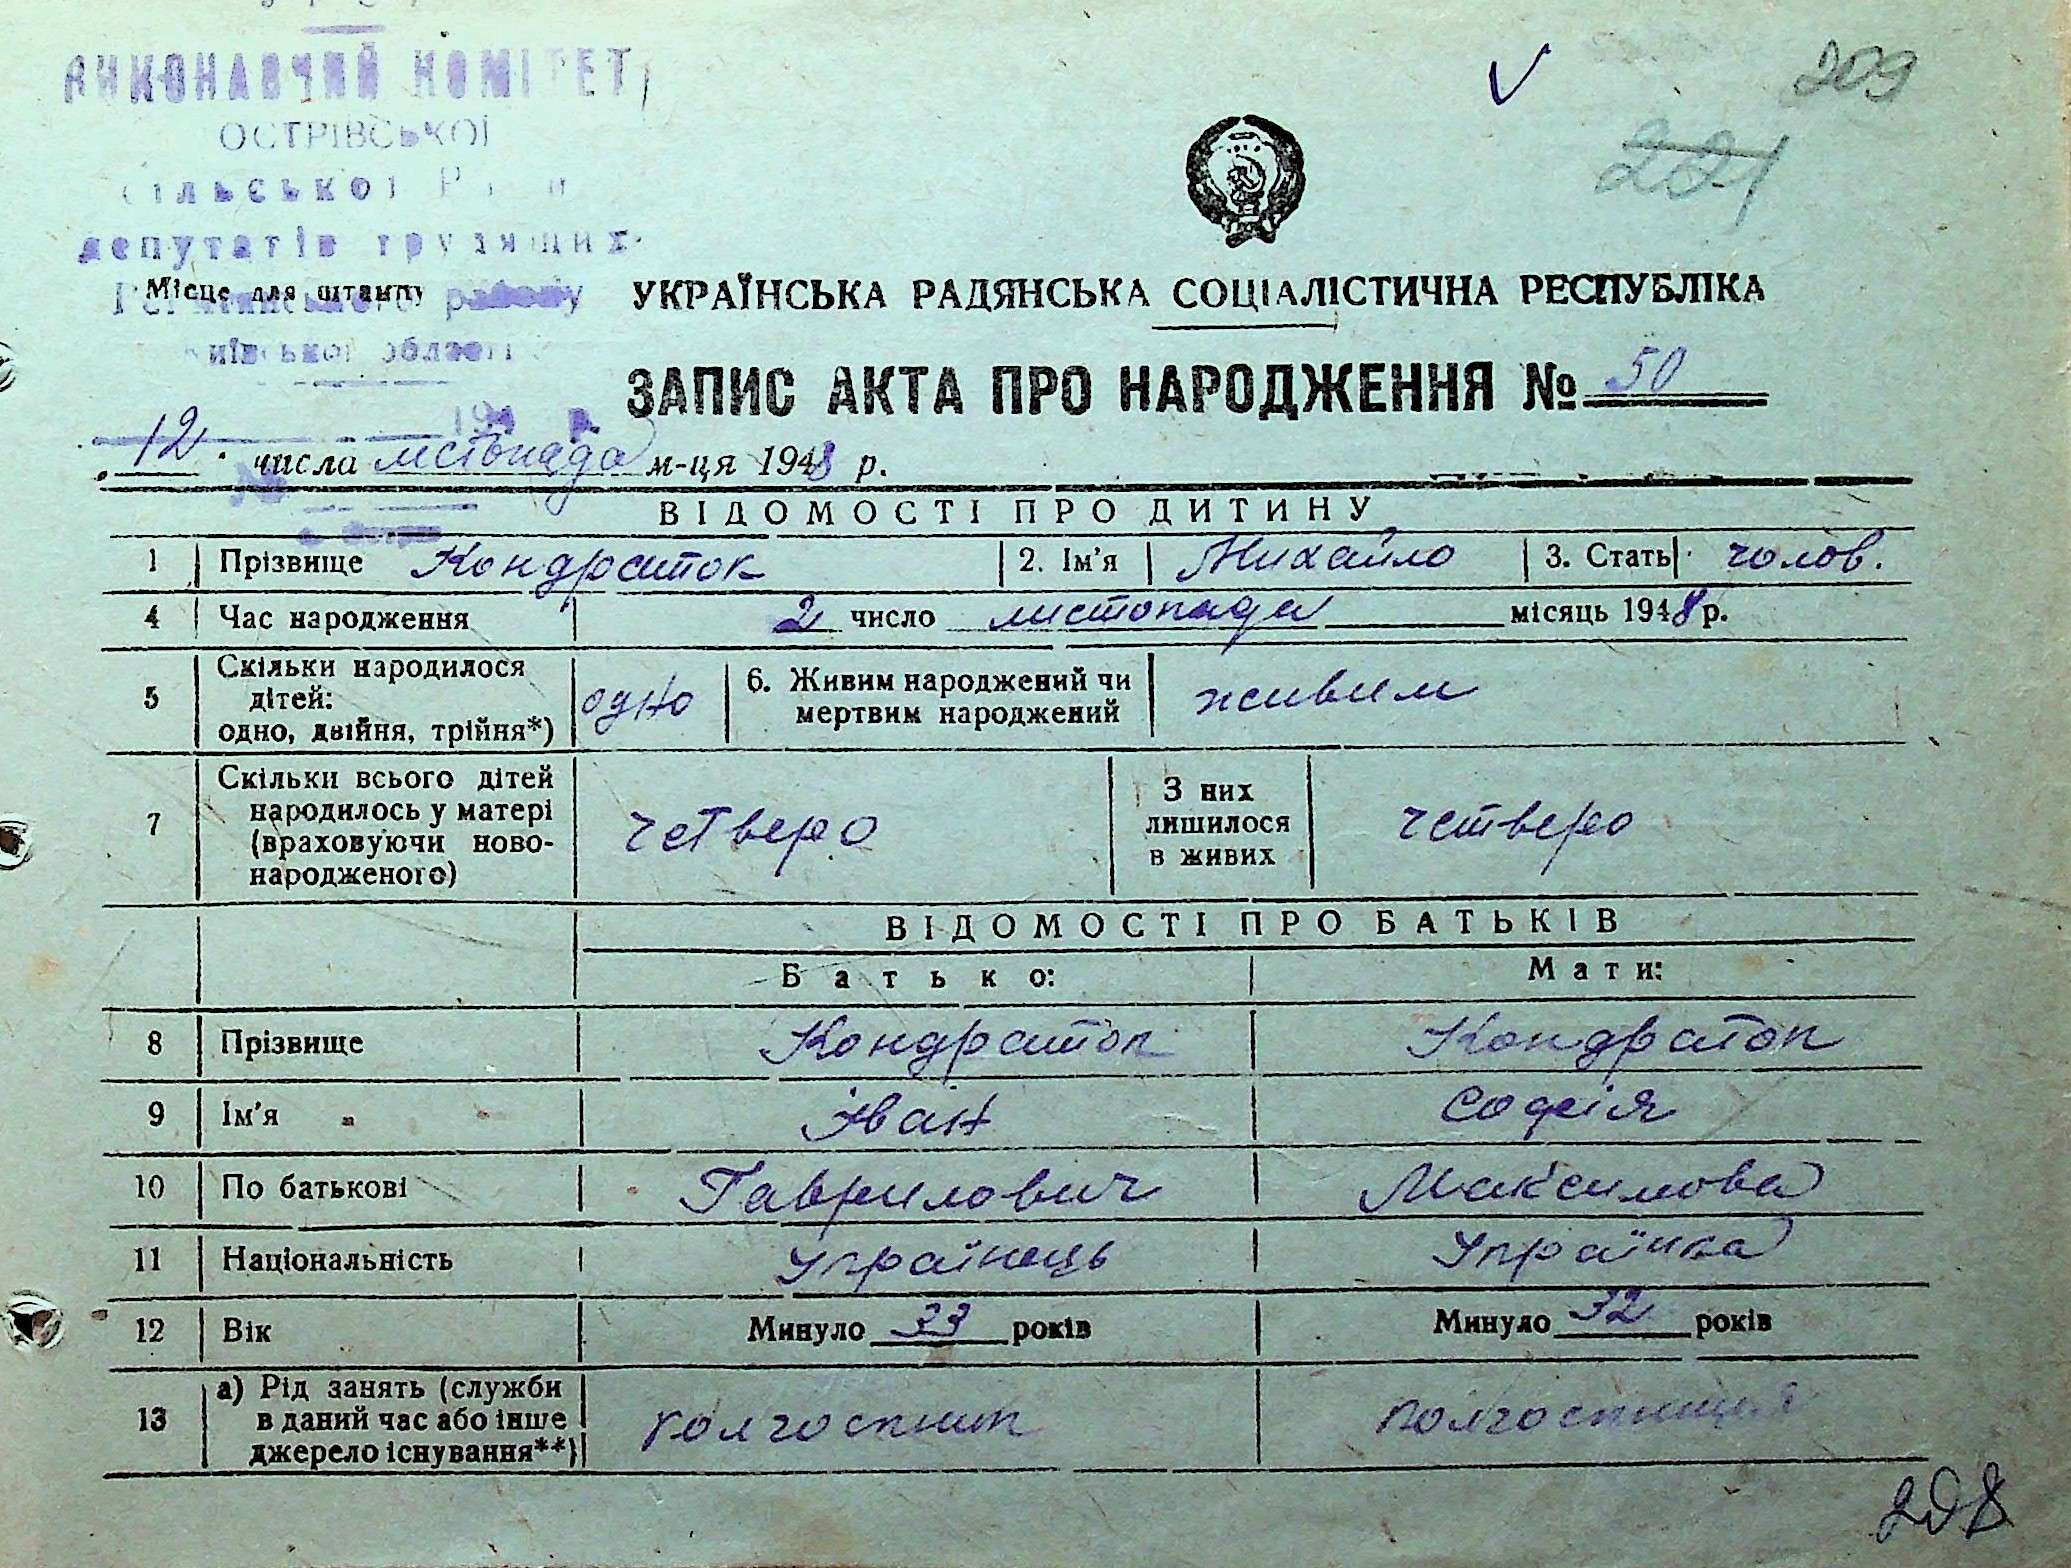 209
ВИКОНАВЧИЙ КОМІТЕТ
ОСТРІВСЬКОЇ
221
сільської Ради
депутатів трудящих
Місце для штампу
району
УКРАЇНСЬКА РАДЯНСЬКА СОЦІАЛІСТИЧНА РЕСПУБЛІКА
Київської області
ЗАПИС АКТА ПРО НАРОДЖЕННЯ № 50
194 р.
„12" числа листопада м-ця 1948 р.
№
с. Острів
ВІДОМОСТІ ПРО ДИТИНУ
1 Прізвище Кондраток 2. Ім'я Михайло 3. Стать чолов.
4 Час народження 2 число листопада місяць 1948 р.
5 Скільки народилося дітей: одно, двійня, трійня*) одно 6. Живим народжений чи мертвим народжений живим
7 Скільки всього дітей народилось у матері (враховуючи ново-народженого) четверо З них лишилося в живих четверо
ВІДОМОСТІ ПРО БАТЬКІВ
Батько: Мати:
8 Прізвище Кондраток Кондраток
9 Ім'я Іван Софія
10 По батькові Гаврилович Максимова
11 Національність Українець Українка
12 Вік Минуло 33 років Минуло 32 років
13 а) Рід занять (служби в даний час або інше джерело існування**) колгоспник колгоспниця
208